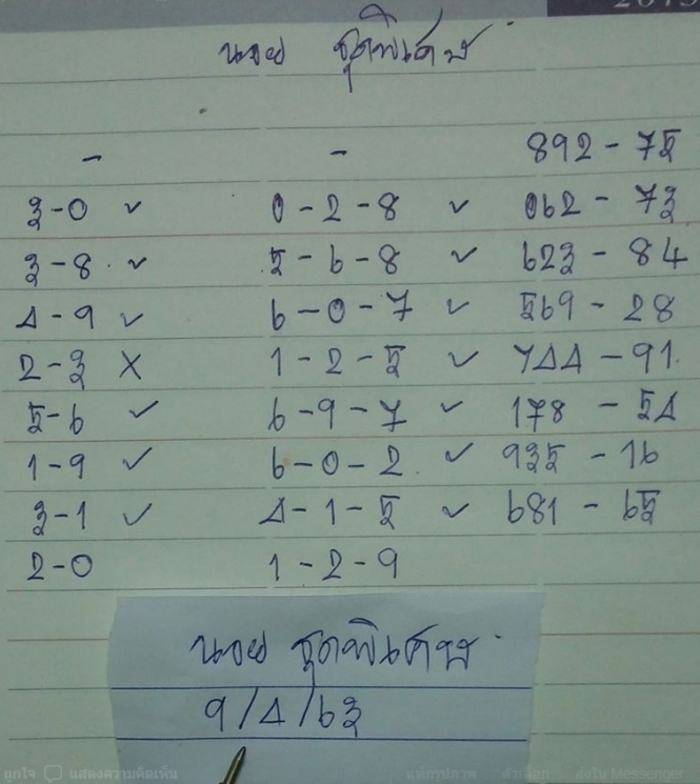 2013
นอย ชุดพิเศษ
- - 892-75
3-0 ✓ 0-2-8 ✓ 062-73
3-8 ✓ 5-6-8 ✓ 623-84
4-9 ✓ 6-0-7 ✓ 569-28
2-3 X 1-2-5 ✓ 744-91
5-6 ✓ 6-9-7 ✓ 178-54
1-9 ✓ 6-0-2 ✓ 935-16
3-1 ✓ 4-1-5 ✓ 681-65
2-0 1-2-9
นอย ชุดพิเศษ
9/4/63
ถูกใจ แสดงความคิดเห็น แท็กรูปภาพ ตัวเลือก ส่งใน Messenger